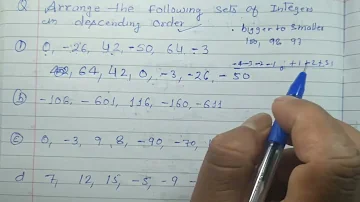 Q Arrange the following sets of Integers
in descending Order
. bigger to smaller
100, 98, 97
① 0, -26, 42, -50, 64, -3
64, 42, 0, -3, -26, -50
-4 -3 -2 -1 0 +1 +2 +3
b -106, -601, 116, -160, -611
c 0, -3, 9, 8, -90, -70,
d 7, 12, 15, -5, -9